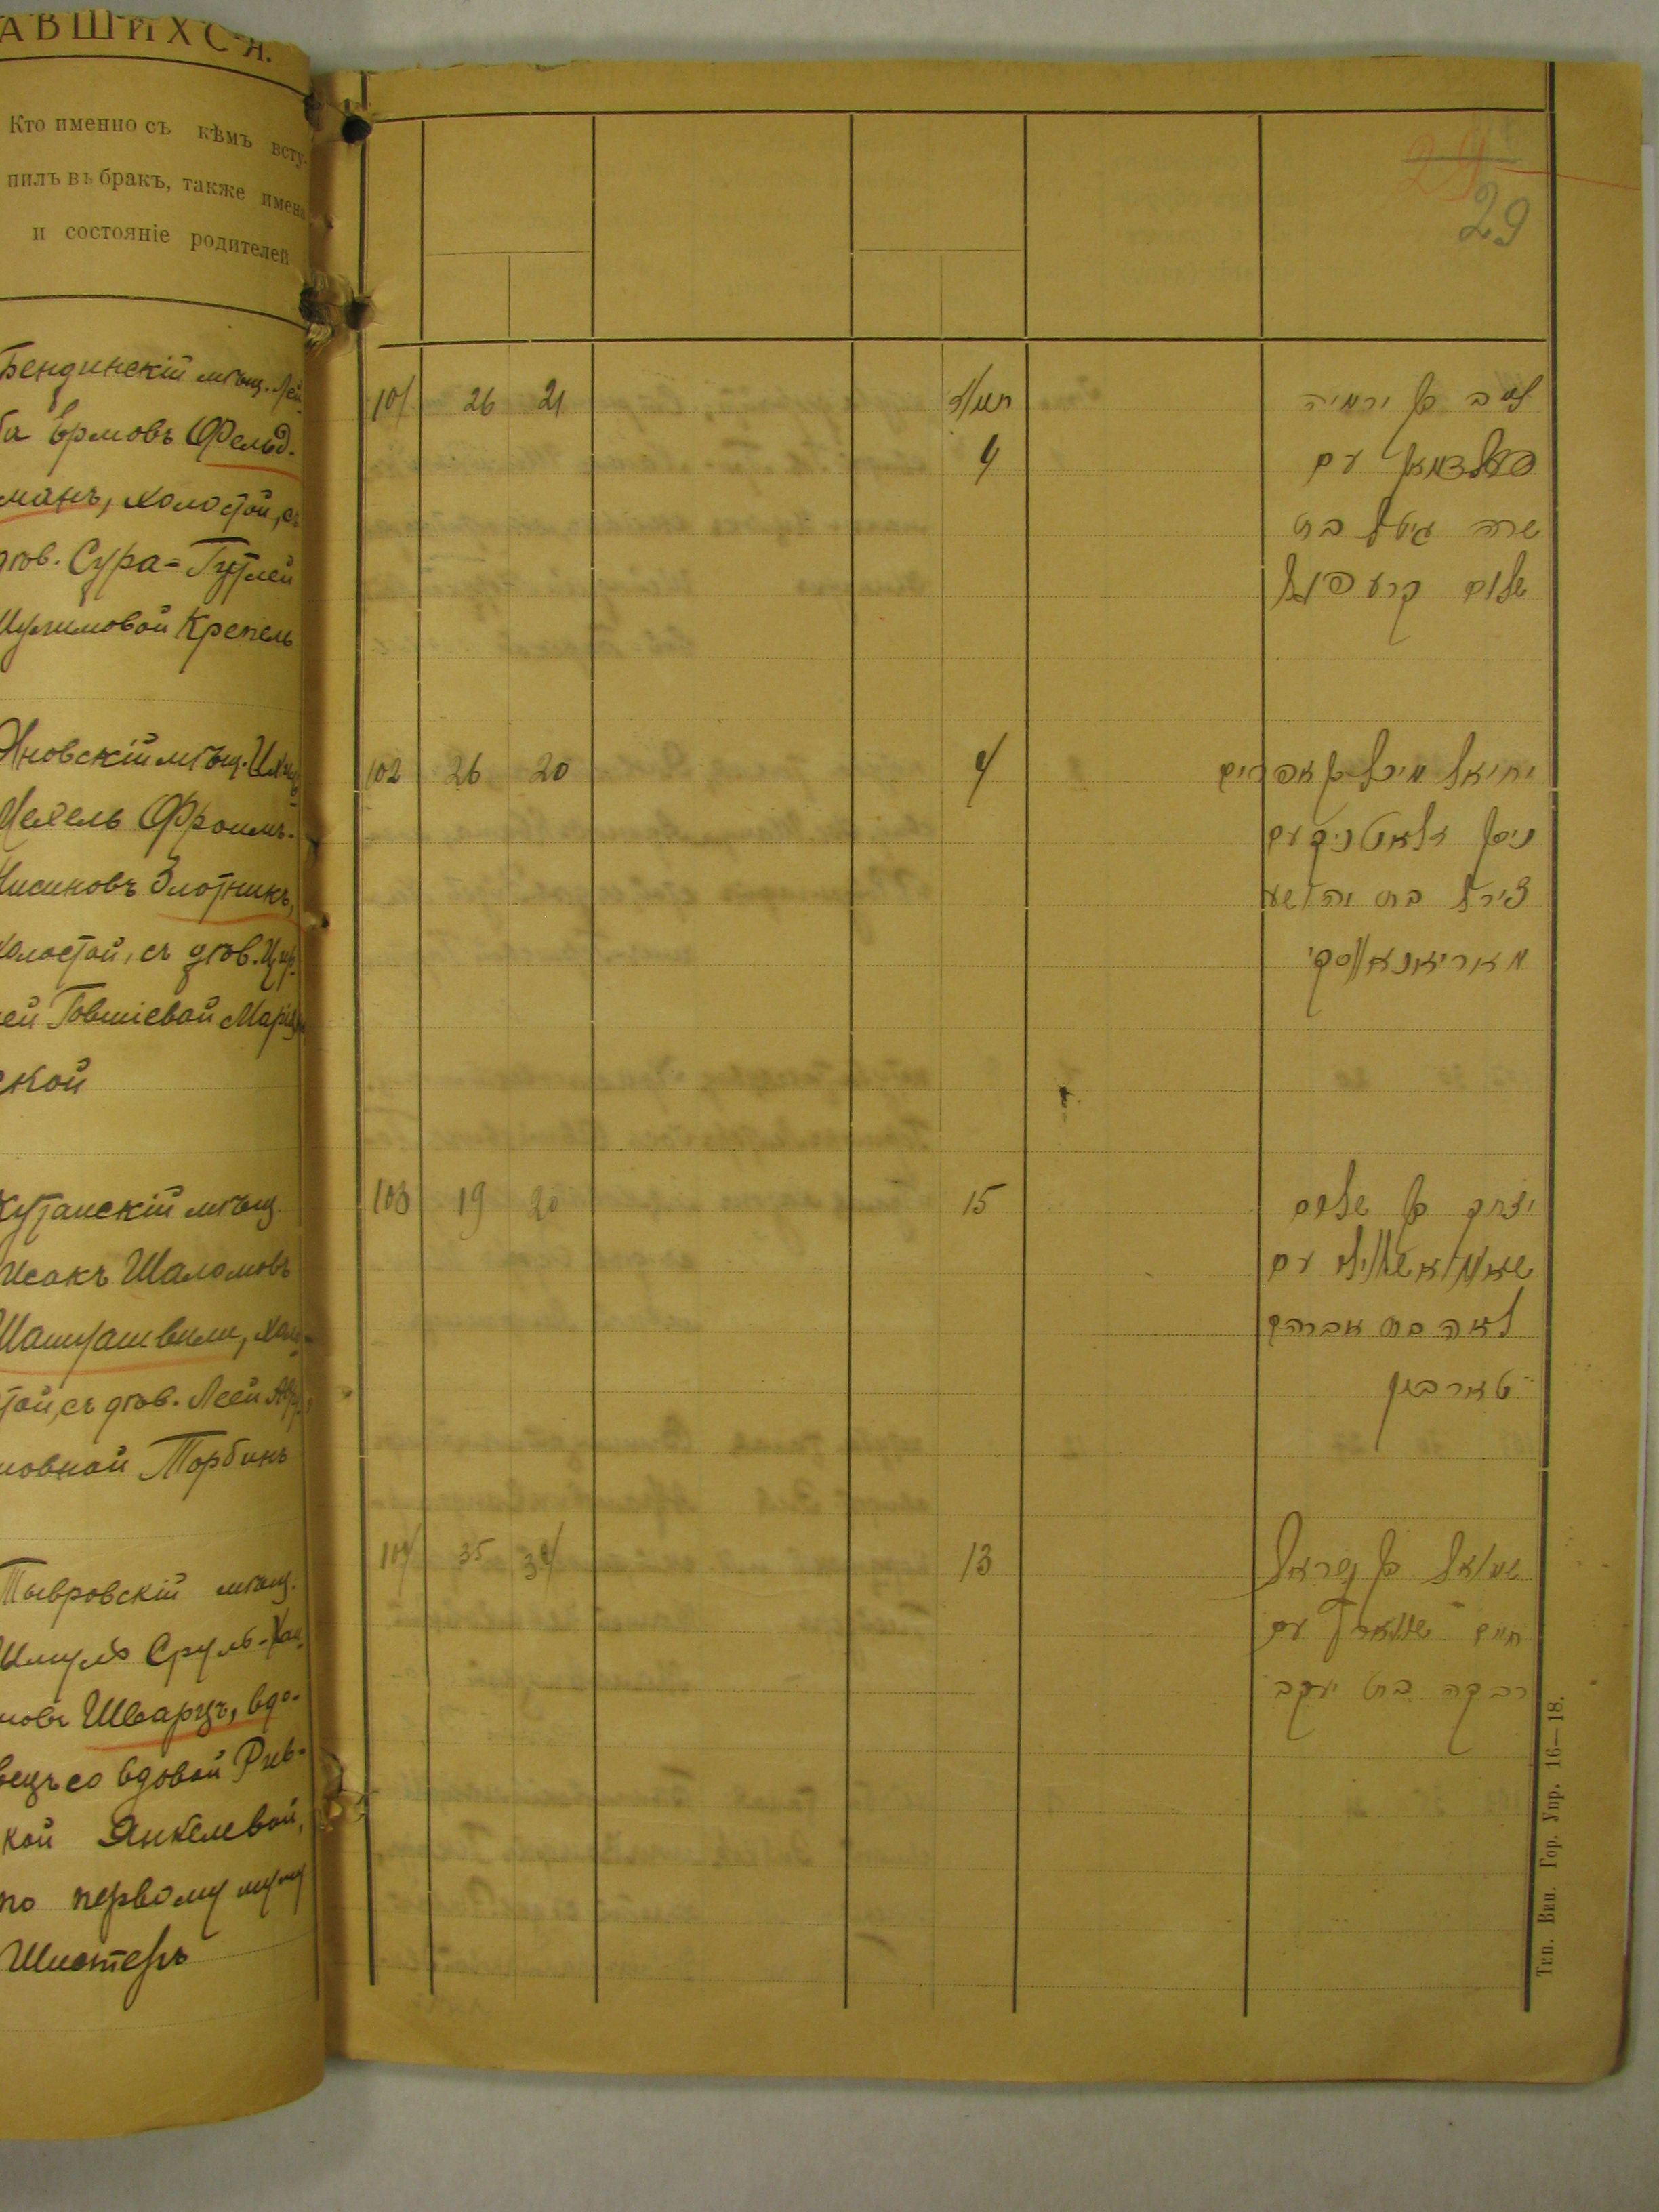 АВШИХСЯ.
Кто именно съ кѣмъ всту-
пилъ въ бракъ, также имена
и состояніе родителей
Бендинскій мѣщ. Лей-
ба Ермовъ Фельд-
манъ, холостой, съ
дѣв. Сура-Гутлей
Шулимовой Крепель
Яновскій мѣщ.
Мехель Фроимъ-
Нисиновъ Злотникъ,
холостой, съ дѣв. Цир-
лей Товшіевой
ской
Кутаискій мѣщ.
Исакъ Шаломовъ
Шашуашвили, холо-
стой, съ дѣв. Леей
мовной Торбинъ
Тывровскій мѣщ.
Шмуль Сруль-Хаи-
мовъ Шварцъ, вдо-
вецъ со вдовой Рив-
кой Янкелевой,
по первому мужу
Шистеръ
29
29
101 26 21
4
לייב בן ירמיה
פעלדמאן עם
שרה גיטל בת
שלום קרעפיל
102 26 20 4
יחיאל מיכל בן אפרים
ניסן זלאטניק עם
צירל בת יהושע
מאריאנאווסקי
103 19 20 15
יצחק בן שלום
עם
לאה בת אברהם
טארבין
104 35 34 13
שמואל בן ישראל
חיים שווארץ עם
רבקה בת יעקב
Тип. Вин. Гор. Упр. 16—18.